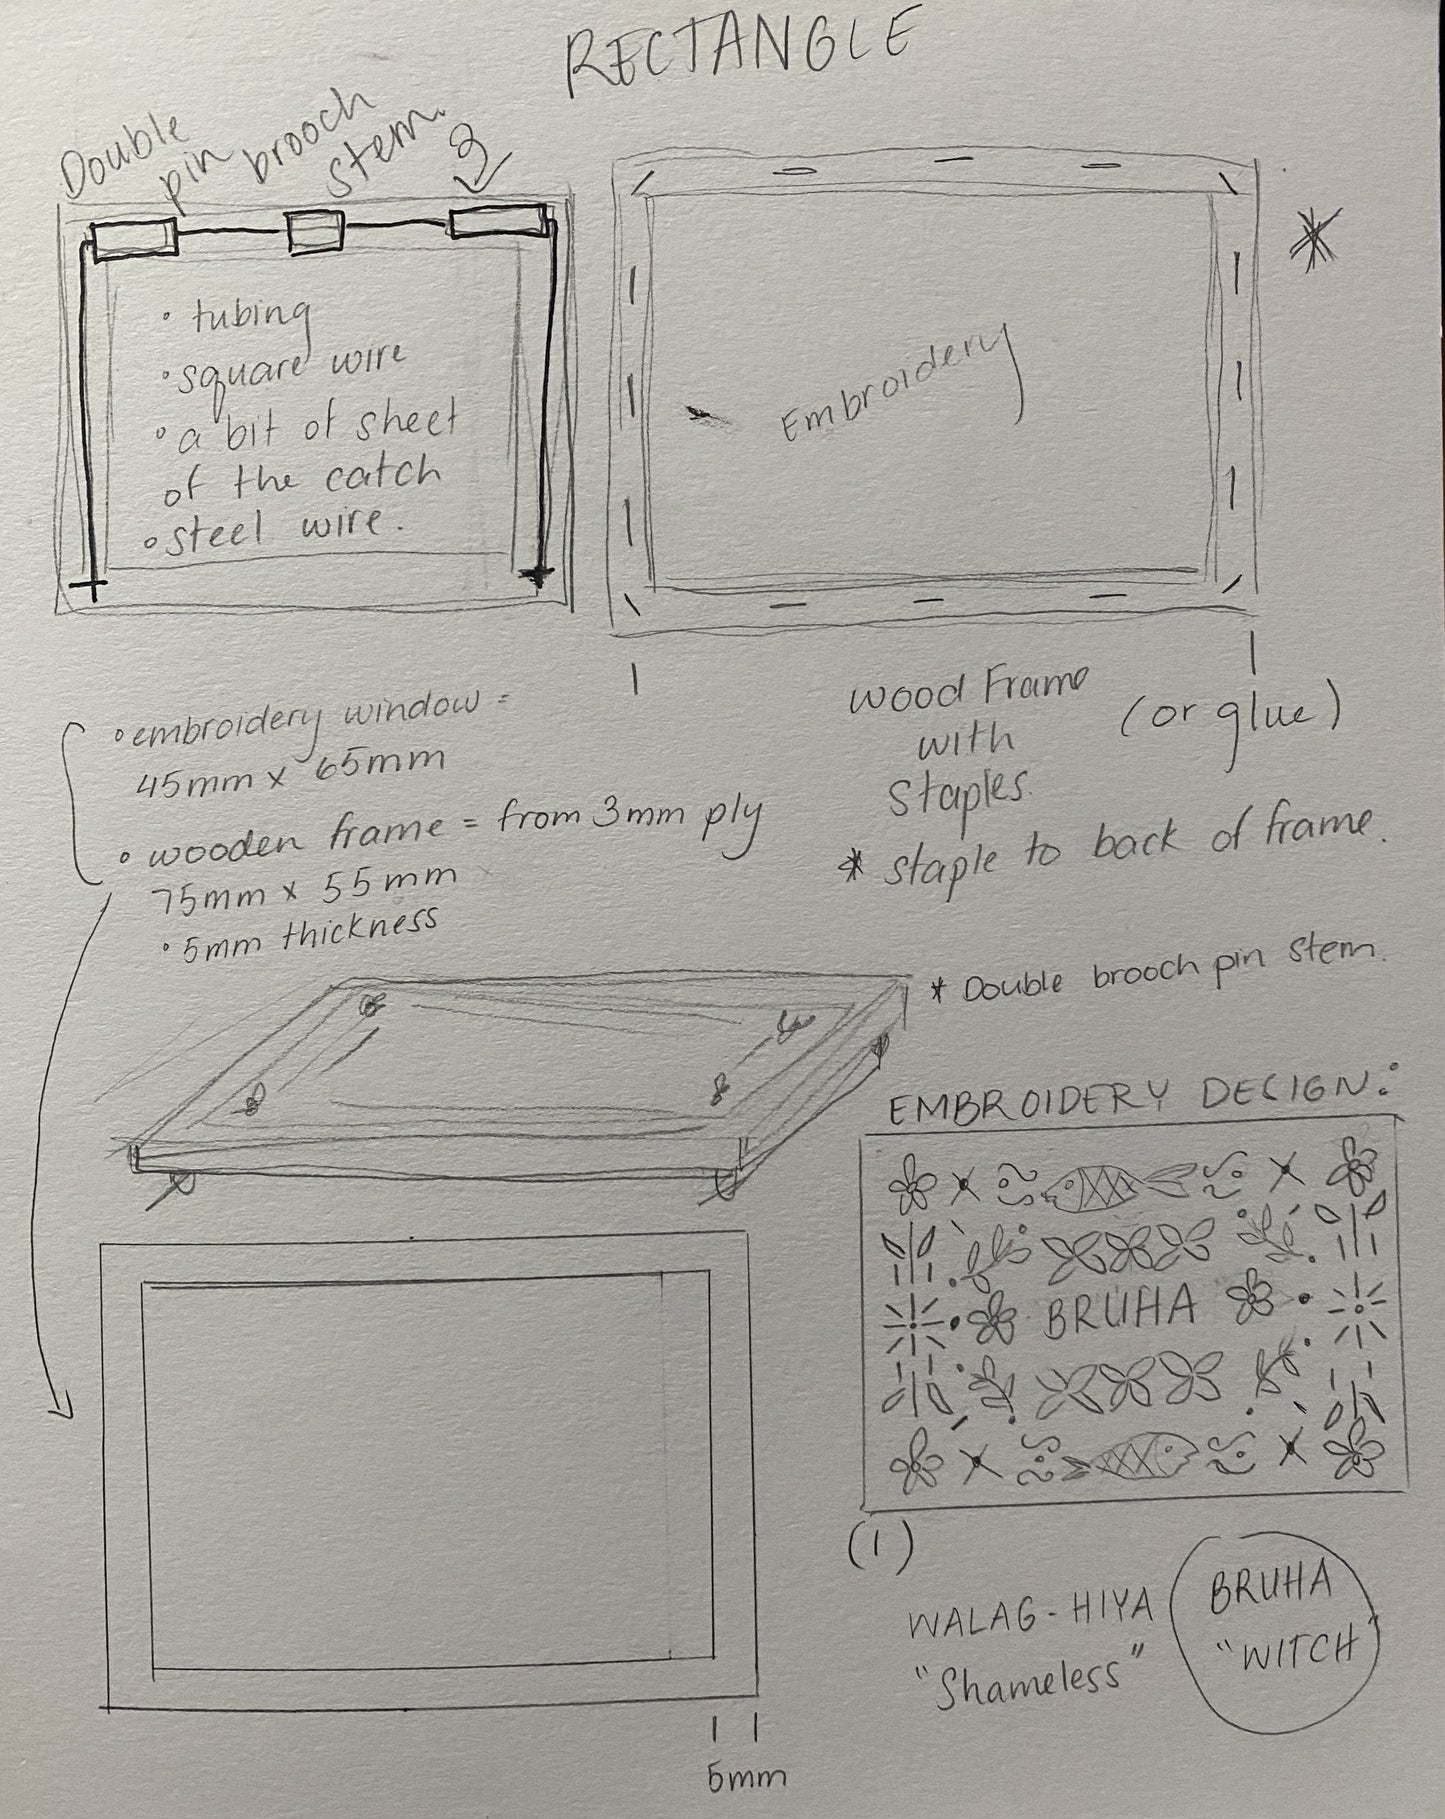 RECTANGLE
Double
pin brooch
stem.
• tubing
• square wire
• a bit of sheet
of the catch
• steel wire.
Embroidery
• embroidery window =
45mm x 65mm
• wooden frame = from 3mm ply
75mm x 55mm
• 5mm thickness
Wood Frame
with
Staples.
(or glue)
* staple to back of frame.
* Double brooch pin stem.
EMBROIDERY DESIGN:
BRUHA
(1)
WALAG-HIYA
"Shameless"
BRUHA
"WITCH"
5mm